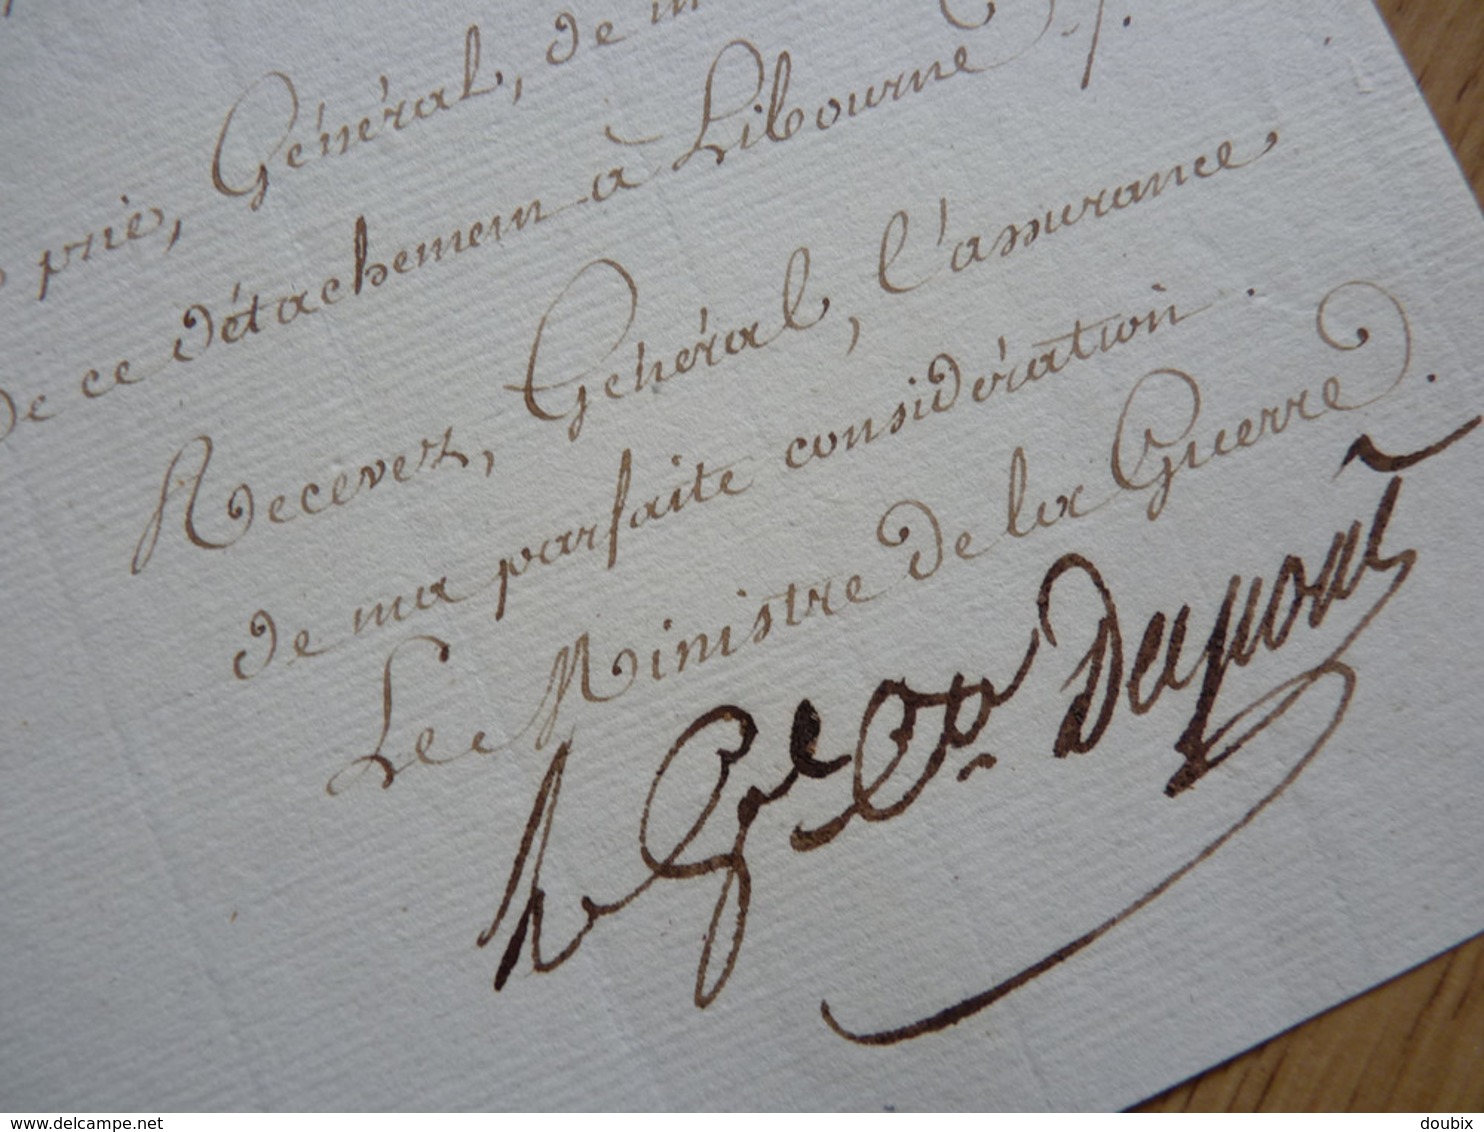 prie, Général, de
de ce détachement à Libourne ./.
Recevez, Général, l'assurance
de ma parfaite considération.
Le Ministre de la Guerre.
le Gal Cte Dupont
delcampe.net
doubix